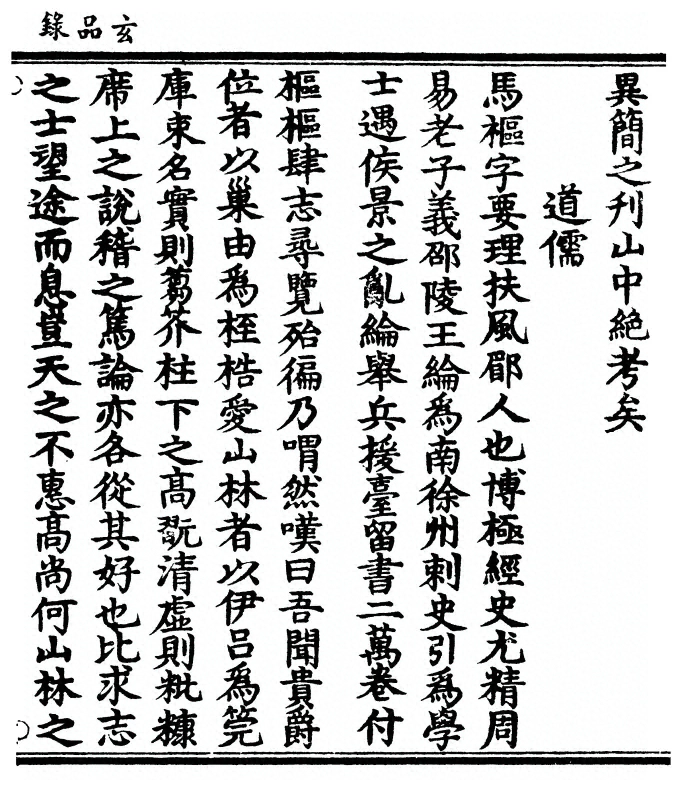 玄品錄
異簡之刋山中絕考矣
道儒
馬樞字要理扶風郿人也博極經史尤精周
易老子義邵陵王綸爲南徐州刺史引爲學
士遇侯景之亂綸舉兵援臺留書二萬卷付
樞樞肆志尋覽殆徧乃喟然嘆曰吾聞貴爵
位者以巢由爲桎梏愛山林者以伊呂爲筦
庫束名實則芻芥柱下之高翫清虛則粃糠
席上之說稽之篤論亦各從其好也比求志
之士望途而息豈天之不惠高尚何山林之